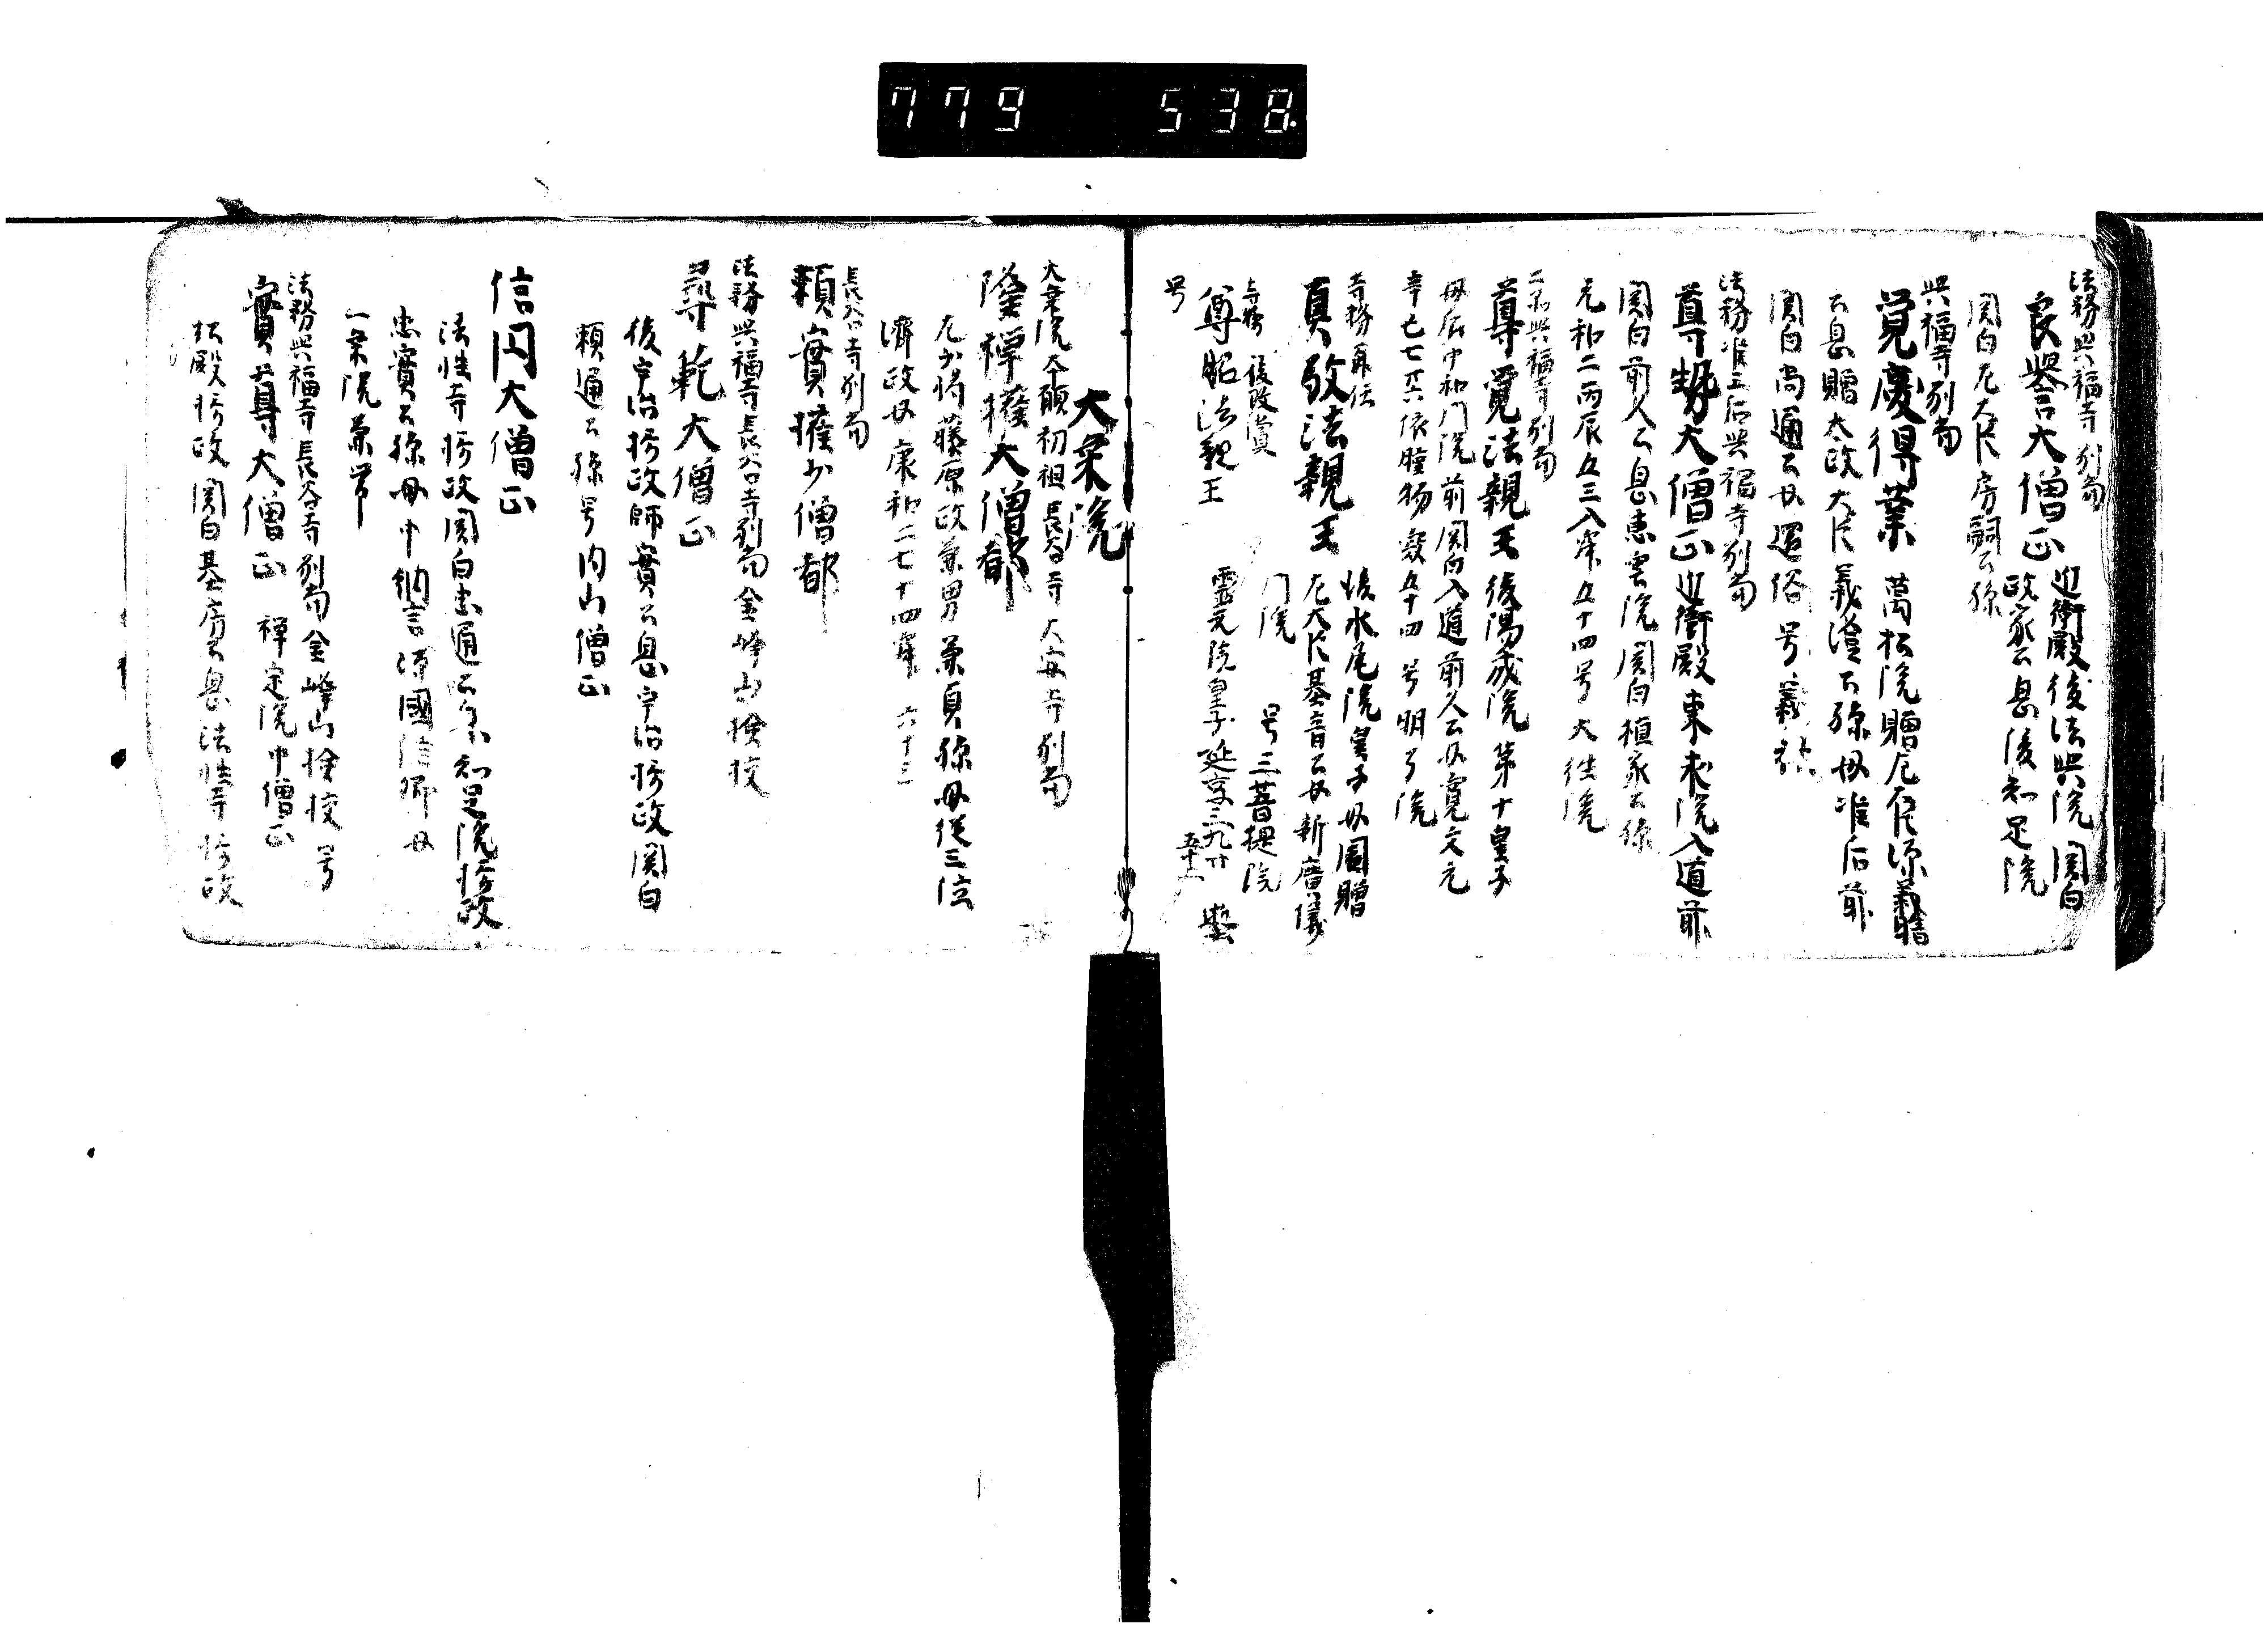 779 538
法務興福寺別当
良誉大僧正 近衛殿後法興院関白
政家公息後知足院
関白左大臣房嗣公孫
興福寺別当
覚慶得業 萬松院贈左府源義晴
公息贈太政大臣義澄公孫母准后前
関白尚通公女還俗号義秋
法務准三后興福寺別当
尊勢大僧正 近衛殿東求院入道前
関白前久公息恵雲院関白植家公孫
元和二丙辰五三入寂五十四号大往院
二品興福寺別当
尊覚法親王 後陽成院第十皇子
母后中和門院前関白入道前久公女寛文元
辛七七廿六依腫物寂五十四号明了院
寺務
真敬法親王 後水尾院皇子母園贈
左大臣基音公女新廣儀
門院 号三菩提院
寺務 後改賞
尊昭法親王 霊元院皇子延享三九廿
号
大乗院
大乗院本願初祖長谷寺大安寺別当
隆禅権大僧都
左少将藤原政兼男兼貞孫母従三位
済政女康和二七十四寂 六十三
長谷寺別当
頼實権少僧都
法務興福寺長谷寺別当金峰山検校
尋範大僧正
後宇治摂政師實公息宇治摂政関白
頼通公孫号内山僧正
信円大僧正
法性寺摂政関白忠通公息知足院摂政
忠實公孫母中納言源國信卿女
一乗院兼帯
法務興福寺長谷寺別当金峰山検校 号
實尊大僧正 禅定院中僧正
松殿摂政関白基房公息法性寺摂政